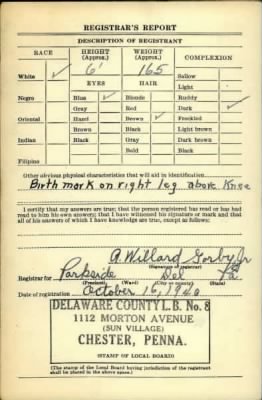 REGISTRAR'S REPORT
DESCRIPTION OF REGISTRANT
RACE HEIGHT (Approx.) WEIGHT (Approx.) COMPLEXION
White ✓ 6' 165 Sallow
Light
EYES HAIR
Negro Blue ✓ Blonde Ruddy
Gray Red Dark ✓
Oriental Hazel Brown ✓ Freckled
Brown Black Light brown
Indian Black Gray Dark brown
Bald Black
Filipino
Other obvious physical characteristics that will aid in identification
Birth mark on right leg above Knee
I certify that my answers are true; that the person registered has read or has had read to him his own answers; that I have witnessed his signature or mark and that all of his answers of which I have knowledge are true, except as follows:
A. Willard Gorby Jr
(Signature of registrar)
Registrar for Parkside Del Pa
(Precinct) (Ward) (City or county) (State)
Date of registration October 16, 1940
DELAWARE COUNTY L.B. No. 8
1112 MORTON AVENUE
(SUN VILLAGE)
CHESTER, PENNA.
(STAMP OF LOCAL BOARD)
(The stamp of the Local Board having jurisdiction of the registrant
shall be placed in the above space.)